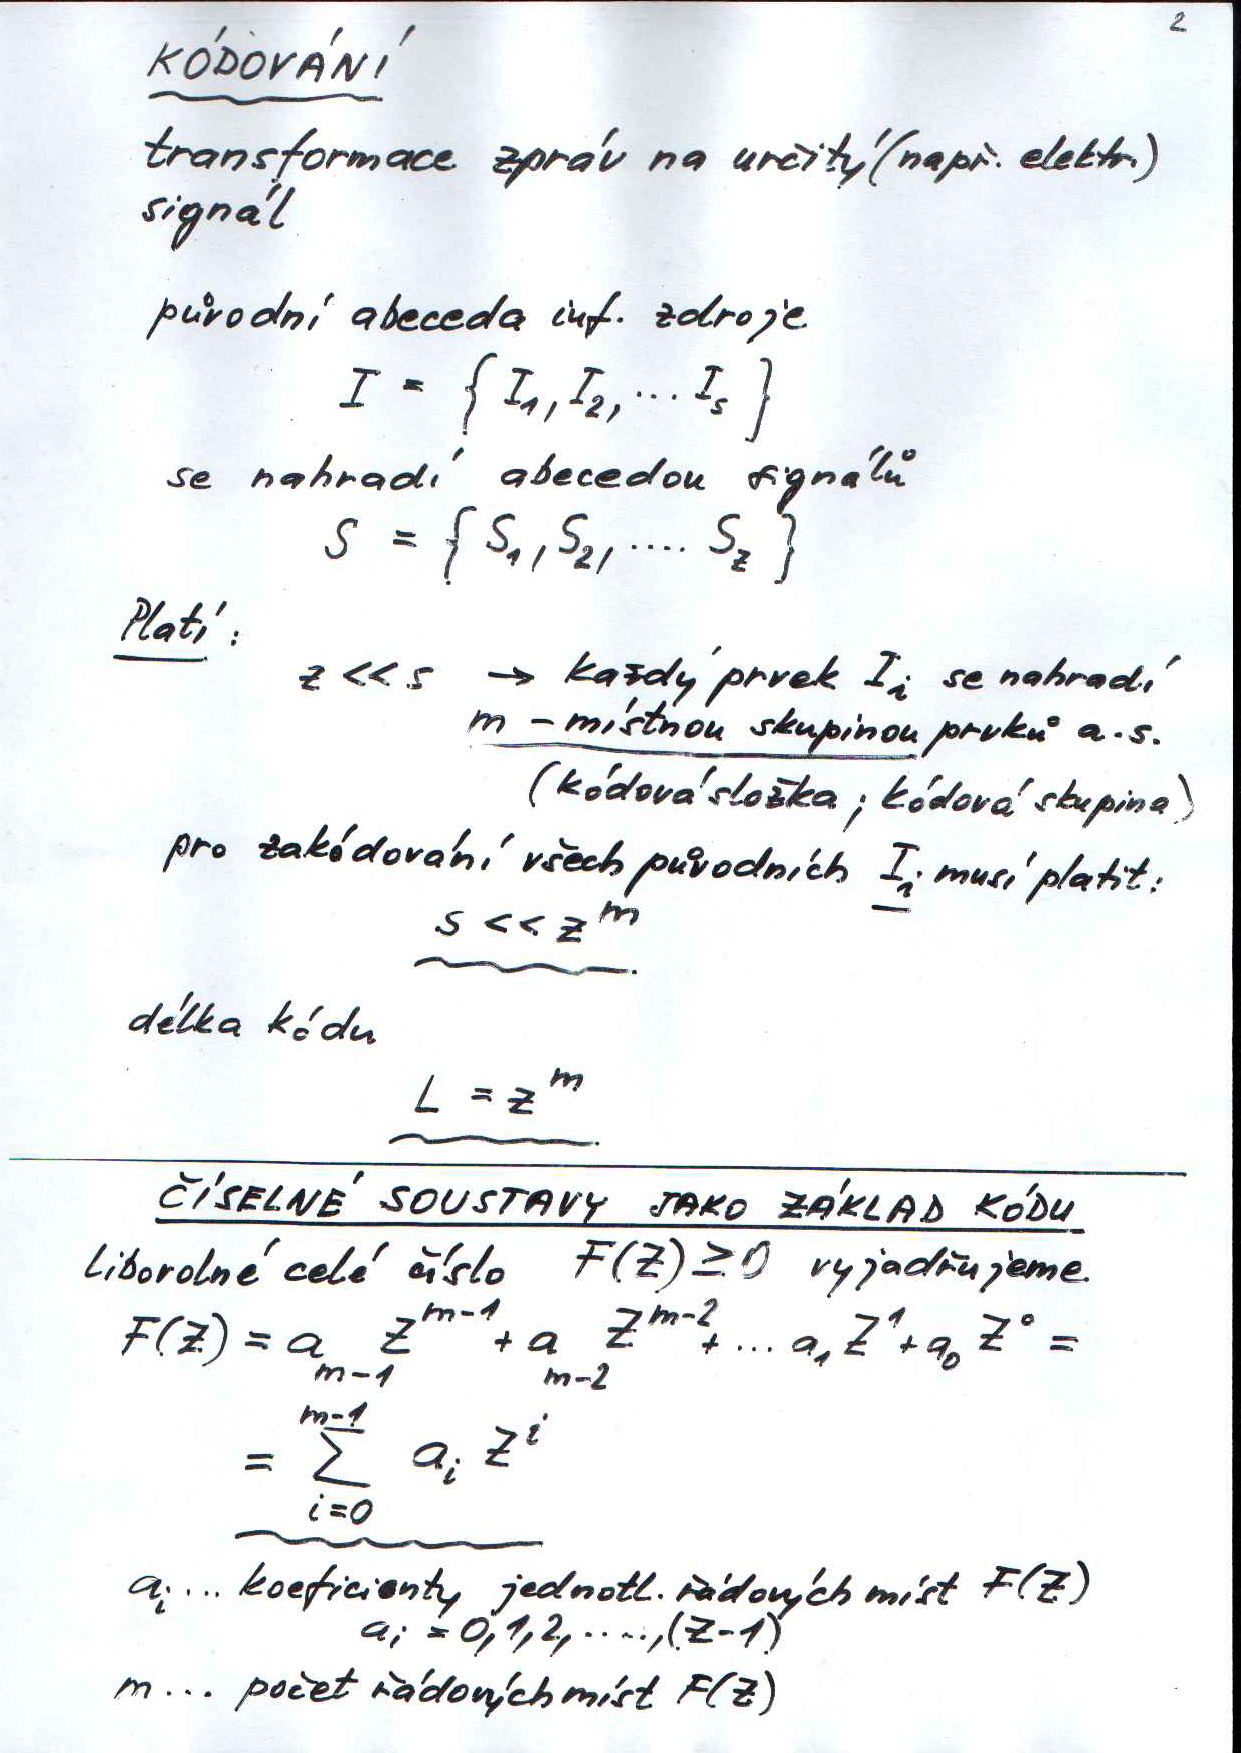 2
KÓDOVÁNÍ
transformace zpráv na určitý (např. elektr.)
signál
původní abeceda inf. zdroje
I = { I₁, I₂, ... Iₛ }
se nahradí abecedou signálů
S = { S₁, S₂, .... S_z }
Platí:
z << s → každý prvek Iᵢ se nahradí
m - místnou skupinou prvků a.s.
(kódová složka; kódová skupina)
pro zakódování všech původních Iᵢ musí platit:
s << z^m
délka kódu
L = z^m
ČÍSELNÉ SOUSTAVY JAKO ZÁKLAD KÓDU
libovolné celé číslo F(Z) ≥ 0 vyjadřujeme
F(Z) = a_{m-1} Z^{m-1} + a_{m-2} Z^{m-2} + ... a₁ Z¹ + a₀ Z⁰ =
= ∑_{i=0}^{m-1} aᵢ Zⁱ
aᵢ ... koeficienty jednotl. řádových míst F(Z)
aᵢ = 0, 1, 2, ....., (Z-1)
m ... počet řádových míst F(Z)